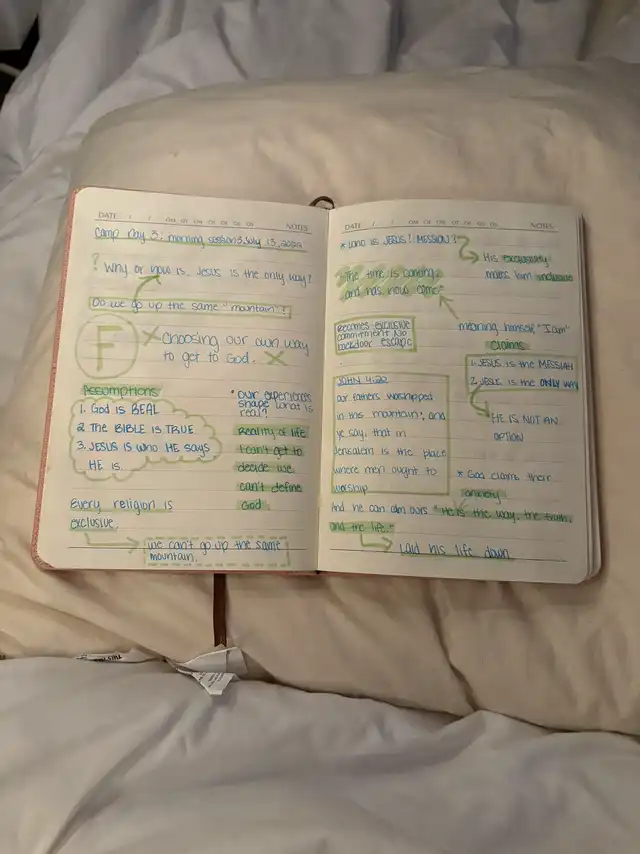 DATE / / MO TU WE TH FR SA SU NOTES
Camp Day 3: morning session 3, July 13, 2022
? Why or how is, Jesus is the only way?
Do we go up the same "mountain"?
F
X Choosing our own way
to get to God. X
Assumptions
1. God is REAL
2 The BIBLE is TRUE
3. JESUS is who HE says
HE is.
• our experiences
shape what is
real?
Reality of life
I can't get to
decide we
can't define
God
Every religion is
exclusive.
we can't go up the same
mountain.
DATE / / MO TU WE TH FR SA SU NOTES
* Who is JESUS? MISSION?
His exclusivity
makes him inclusive
"The time is coming,
and has now come"
meaning himself "I am"
Becomes exclusive
commitment No
backdoor escape
Claims
1. JESUS is the MESSIAH
2. JESUS is the ONLY WAY
HE IS NOT AN
OPTION
JOHN 4:20
our fathers worshipped
in this mountain; and
ye say, that in
Jerusalem is the place
where men ought to
worship
* God claims their
anxiety
And he can claim ours "He is the way, the truth,
and the life."
Laid his life down